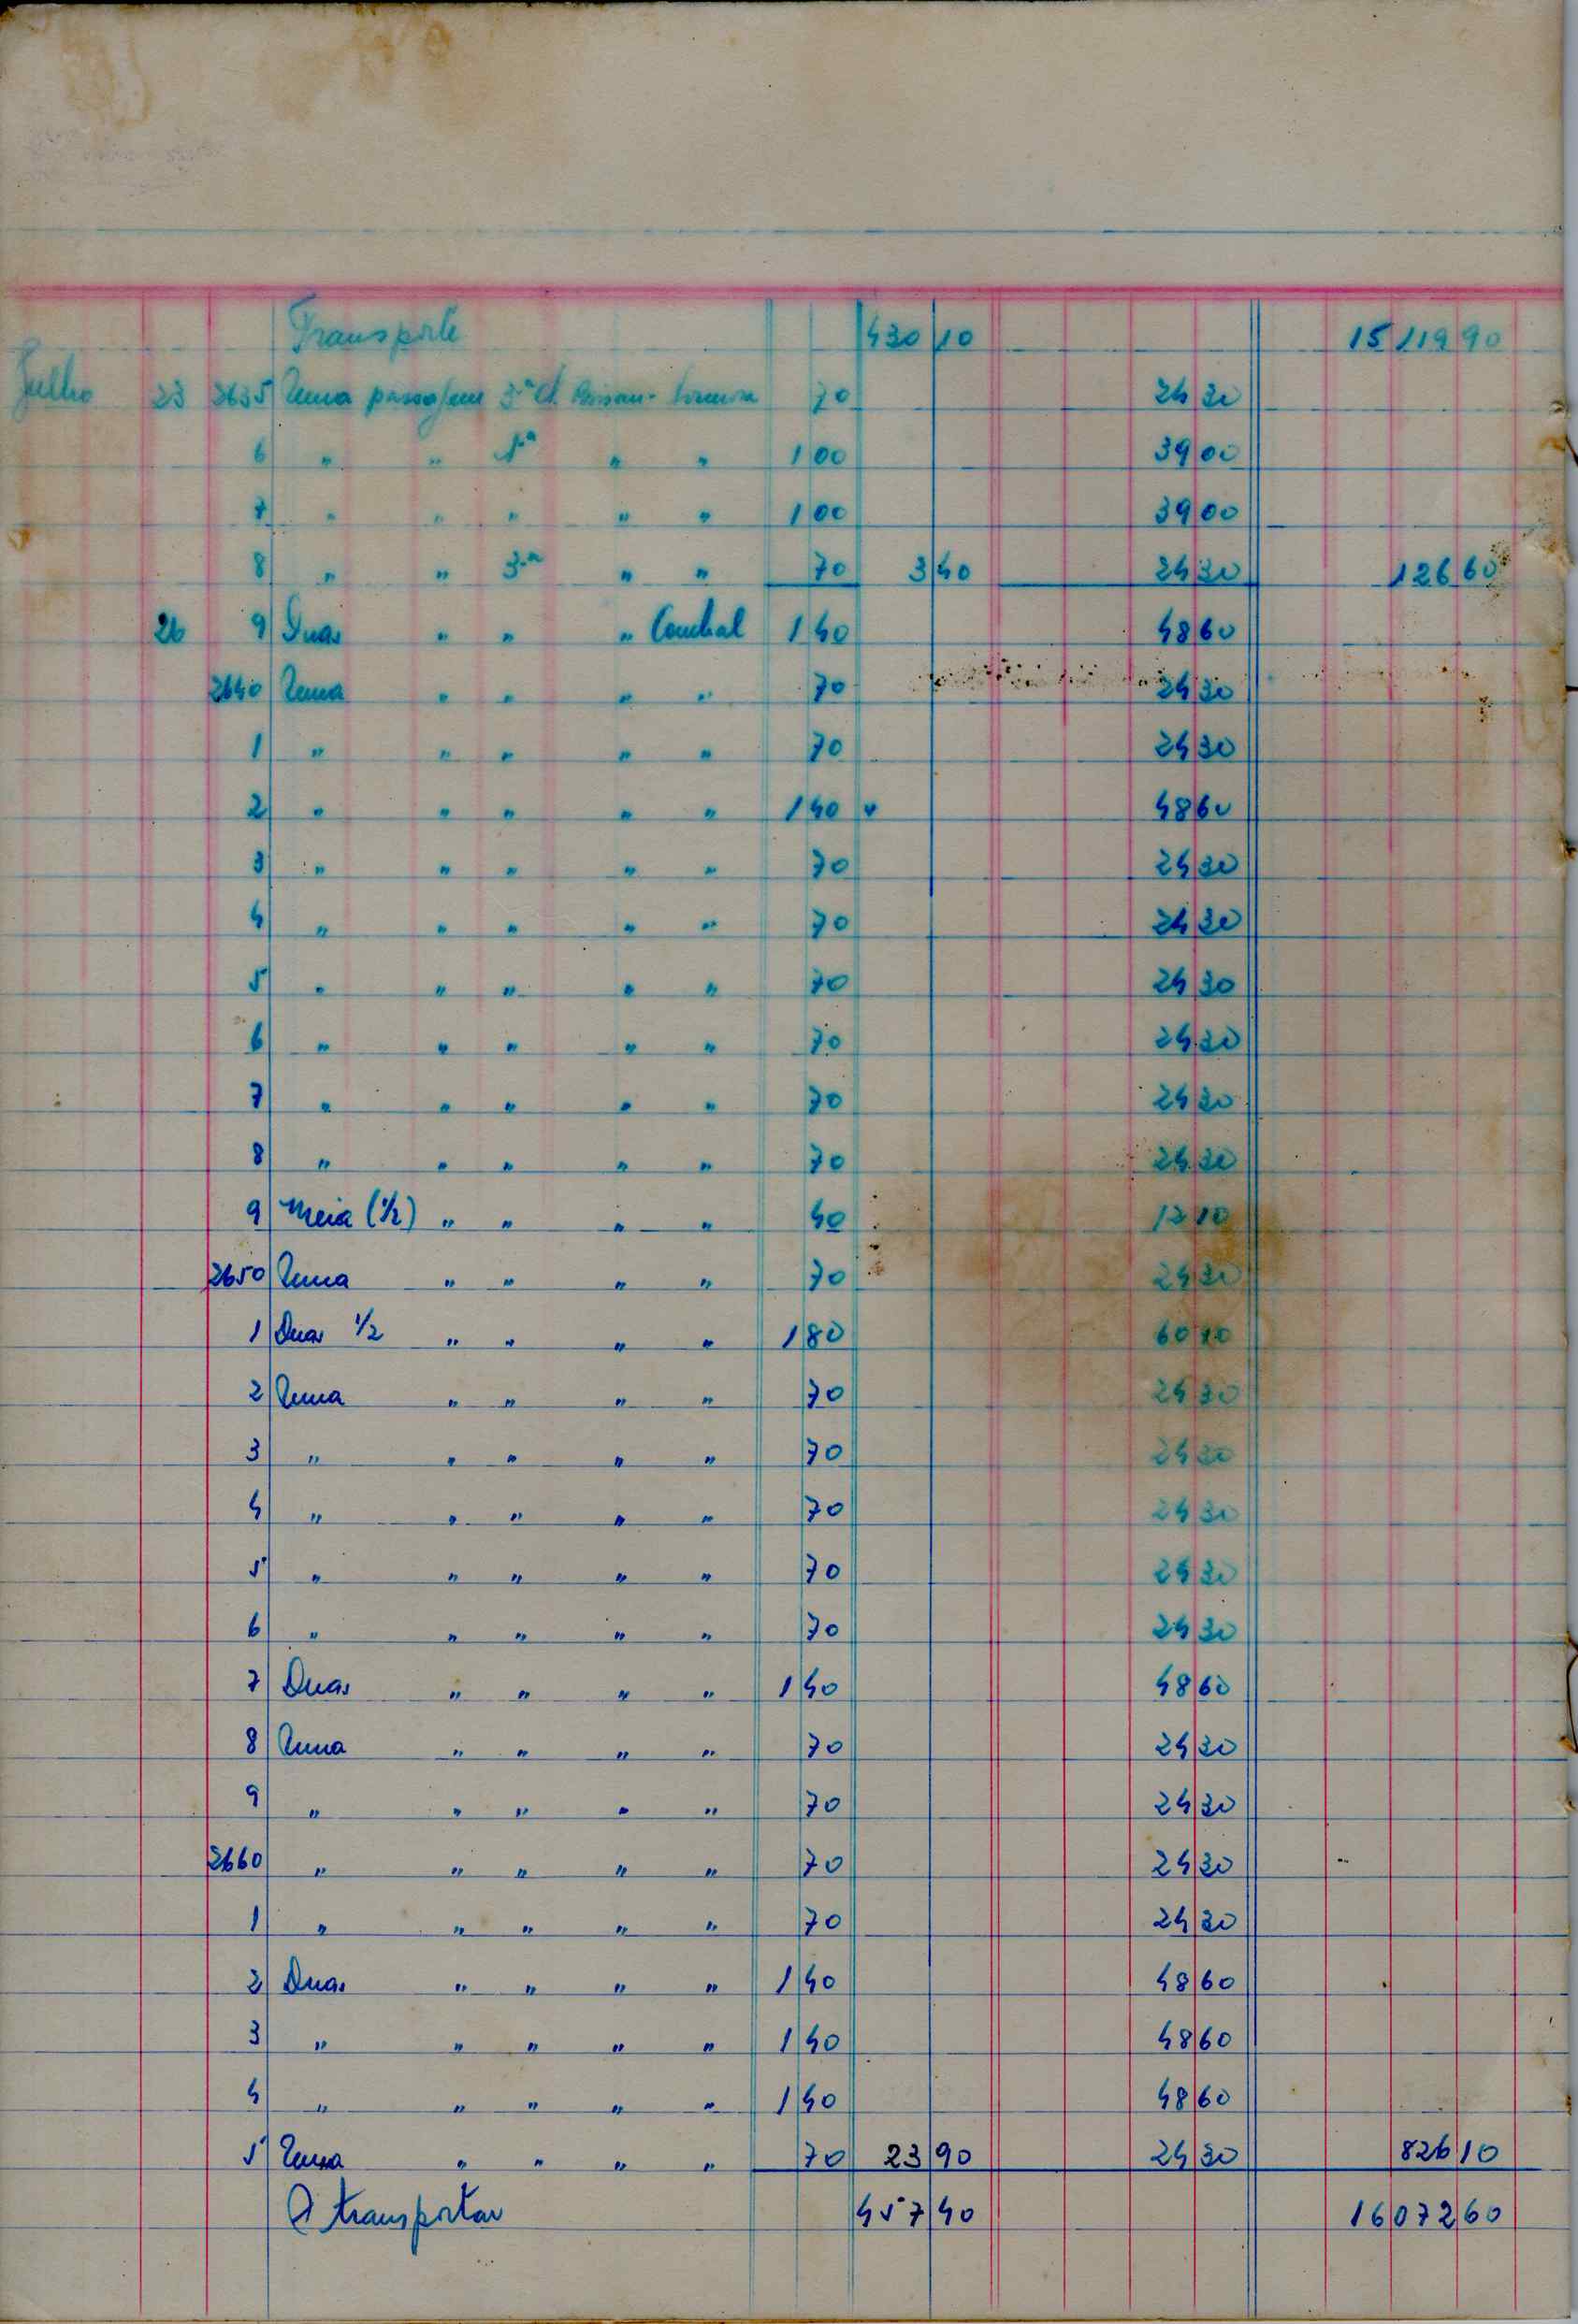 Transporte 430 10 15 119 90
Julho 23 2635 Uma passagem 3.ª Cl. Bissau- Formosa 70 24 30
6 " " 1.ª " " 1 00 39 00
7 " " " " " 1 00 39 00
8 " " 3.ª " " 70 3 40 24 30 126 60
26 9 Duas " " " Conchal 1 40 48 60
2640 Uma " " " " 70 24 30
1 " " " " " 70 24 30
2 " " " " " 1 40 48 60
3 " " " " " 70 24 30
4 " " " " " 70 24 30
5 " " " " " 70 24 30
6 " " " " " 70 24 30
7 " " " " " 70 24 30
8 " " " " " 70 24 30
9 Meia (1/2) " " " " 40 12 10
2650 Uma " " " " 70 24 30
1 Duas 1/2 " " " " 1 80 60 70
2 Uma " " " " 70 24 30
3 " " " " " 70 24 30
4 " " " " " 70 24 30
5 " " " " " 70 24 30
6 " " " " " 70 24 30
7 Duas " " " " 1 40 48 60
8 Uma " " " " 70 24 30
9 " " " " " 70 24 30
2660 " " " " " 70 24 30
1 " " " " " 70 24 30
2 Duas " " " " 1 40 48 60
3 " " " " " 1 40 48 60
4 " " " " " 1 40 48 60
5 Uma " " " " 70 23 90 24 30 826 10
A transportar 457 40 16 072 60